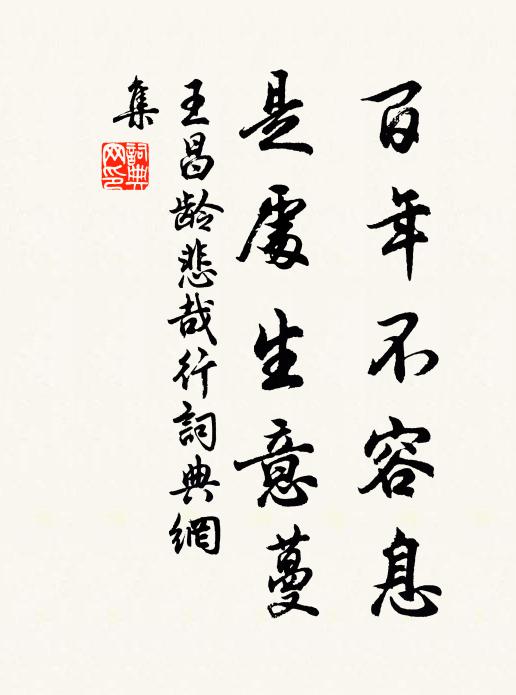 百年不容息
是處生意蔓
王昌龄悲哉行詞典網
集
詞典
网印